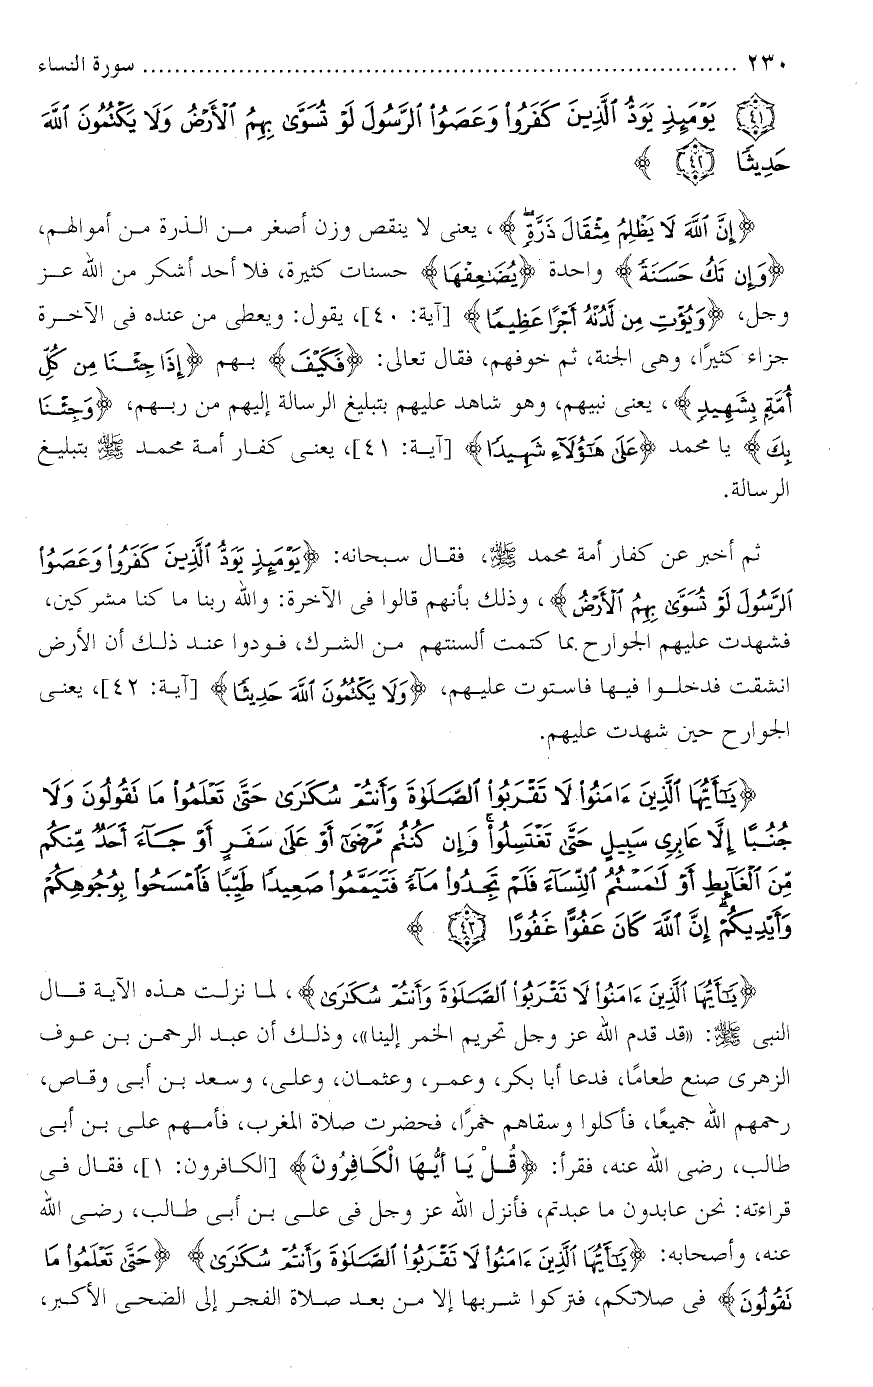 ٢٣٠ ........................................................................... سورة النساء
﴿٤١﴾ يَوْمَئِذٍ يَوَدُّ الَّذِينَ كَفَرُوا وَعَصَوُا الرَّسُولَ لَوْ تُسَوَّىٰ بِهِمُ الْأَرْضُ وَلَا يَكْتُمُونَ اللَّهَ
حَدِيثًا ﴿٤٢﴾ ﴾
﴿إِنَّ اللَّهَ لَا يَظْلِمُ مِثْقَالَ ذَرَّةٍ﴾، يعنى لا ينقص وزن أصغر من الذرة من أموالهم،
﴿وَإِن تَكُ حَسَنَةً﴾ واحدة ﴿يُضَٰعِفْهَا﴾ حسنات كثيرة، فلا أحد أشكر من الله عز
وجل، ﴿وَيُؤْتِ مِن لَّدُنْهُ أَجْرًا عَظِيمًا﴾ [آية: ٤٠]، يقول: ويعطى من عنده فى الآخرة
جزاء كثيرًا، وهى الجنة، ثم خوفهم، فقال تعالى: ﴿فَكَيْفَ﴾ بهم ﴿إِذَا جِئْنَا مِن كُلِّ
أُمَّةٍ بِشَهِيدٍ﴾، يعنى نبيهم، وهو شاهد عليهم بتبليغ الرسالة إليهم من ربهم، ﴿وَجِئْنَا
بِكَ﴾ يا محمد ﴿عَلَىٰ هَٰؤُلَاءِ شَهِيدًا﴾ [آية: ٤١]، يعنى كفار أمة محمد ﷺ بتبليغ
الرسالة.
ثم أخبر عن كفار أمة محمد ﷺ، فقال سبحانه: ﴿يَوْمَئِذٍ يَوَدُّ الَّذِينَ كَفَرُوا وَعَصَوُا
الرَّسُولَ لَوْ تُسَوَّىٰ بِهِمُ الْأَرْضُ﴾، وذلك بأنهم قالوا فى الآخرة: والله ربنا ما كنا مشركين،
فشهدت عليهم الجوارح بما كتمت ألسنتهم من الشرك، فودوا عند ذلك أن الأرض
انشقت فدخلوا فيها فاستوت عليهم، ﴿وَلَا يَكْتُمُونَ اللَّهَ حَدِيثًا﴾ [آية: ٤٢]، يعنى
الجوارح حين شهدت عليهم.
﴿يَٰأَيُّهَا الَّذِينَ ءَامَنُوا لَا تَقْرَبُوا الصَّلَوٰةَ وَأَنتُمْ سُكَٰرَىٰ حَتَّىٰ تَعْلَمُوا مَا تَقُولُونَ وَلَا
جُنُبًا إِلَّا عَابِرِى سَبِيلٍ حَتَّىٰ تَغْتَسِلُوا وَإِن كُنتُم مَّرْضَىٰ أَوْ عَلَىٰ سَفَرٍ أَوْ جَآءَ أَحَدٌ مِّنكُم
مِّنَ الْغَآئِطِ أَوْ لَٰمَسْتُمُ النِّسَآءَ فَلَمْ تَجِدُوا مَآءً فَتَيَمَّمُوا صَعِيدًا طَيِّبًا فَامْسَحُوا بِوُجُوهِكُمْ
وَأَيْدِيكُمْ إِنَّ اللَّهَ كَانَ عَفُوًّا غَفُورًا ﴿٤٣﴾ ﴾
﴿يَٰأَيُّهَا الَّذِينَ ءَامَنُوا لَا تَقْرَبُوا الصَّلَوٰةَ وَأَنتُمْ سُكَٰرَىٰ﴾، لما نزلت هذه الآية قال
النبى ﷺ: «قد قدم الله عز وجل تحريم الخمر إلينا»، وذلك أن عبد الرحمن بن عوف
الزهرى صنع طعامًا، فدعا أبا بكر، وعمر، وعثمان، وعلى، وسعد بن أبى وقاص،
رحمهم الله جميعًا، فأكلوا وسقاهم خمرًا، فحضرت صلاة المغرب، فأمهم على بن أبى
طالب، رضى الله عنه، فقرأ: ﴿قُلْ يَا أَيُّهَا الْكَافِرُونَ﴾ [الكافرون: ١]، فقال فى
قراءته: نحن عابدون ما عبدتم، فأنزل الله عز وجل فى على بن أبى طالب، رضى الله
عنه، وأصحابه: ﴿يَٰأَيُّهَا الَّذِينَ ءَامَنُوا لَا تَقْرَبُوا الصَّلَوٰةَ وَأَنتُمْ سُكَٰرَىٰ﴾ ﴿حَتَّىٰ تَعْلَمُوا مَا
تَقُولُونَ﴾ فى صلاتكم، فتركوا شربها إلا من بعد صلاة الفجر إلى الضحى الأكبر،